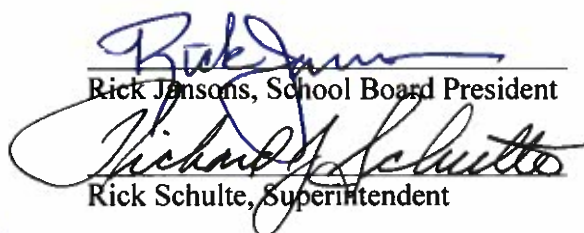 Rick Jansons
Rick Jansons, School Board President
Richard J Schulte
Rick Schulte, Superintendent